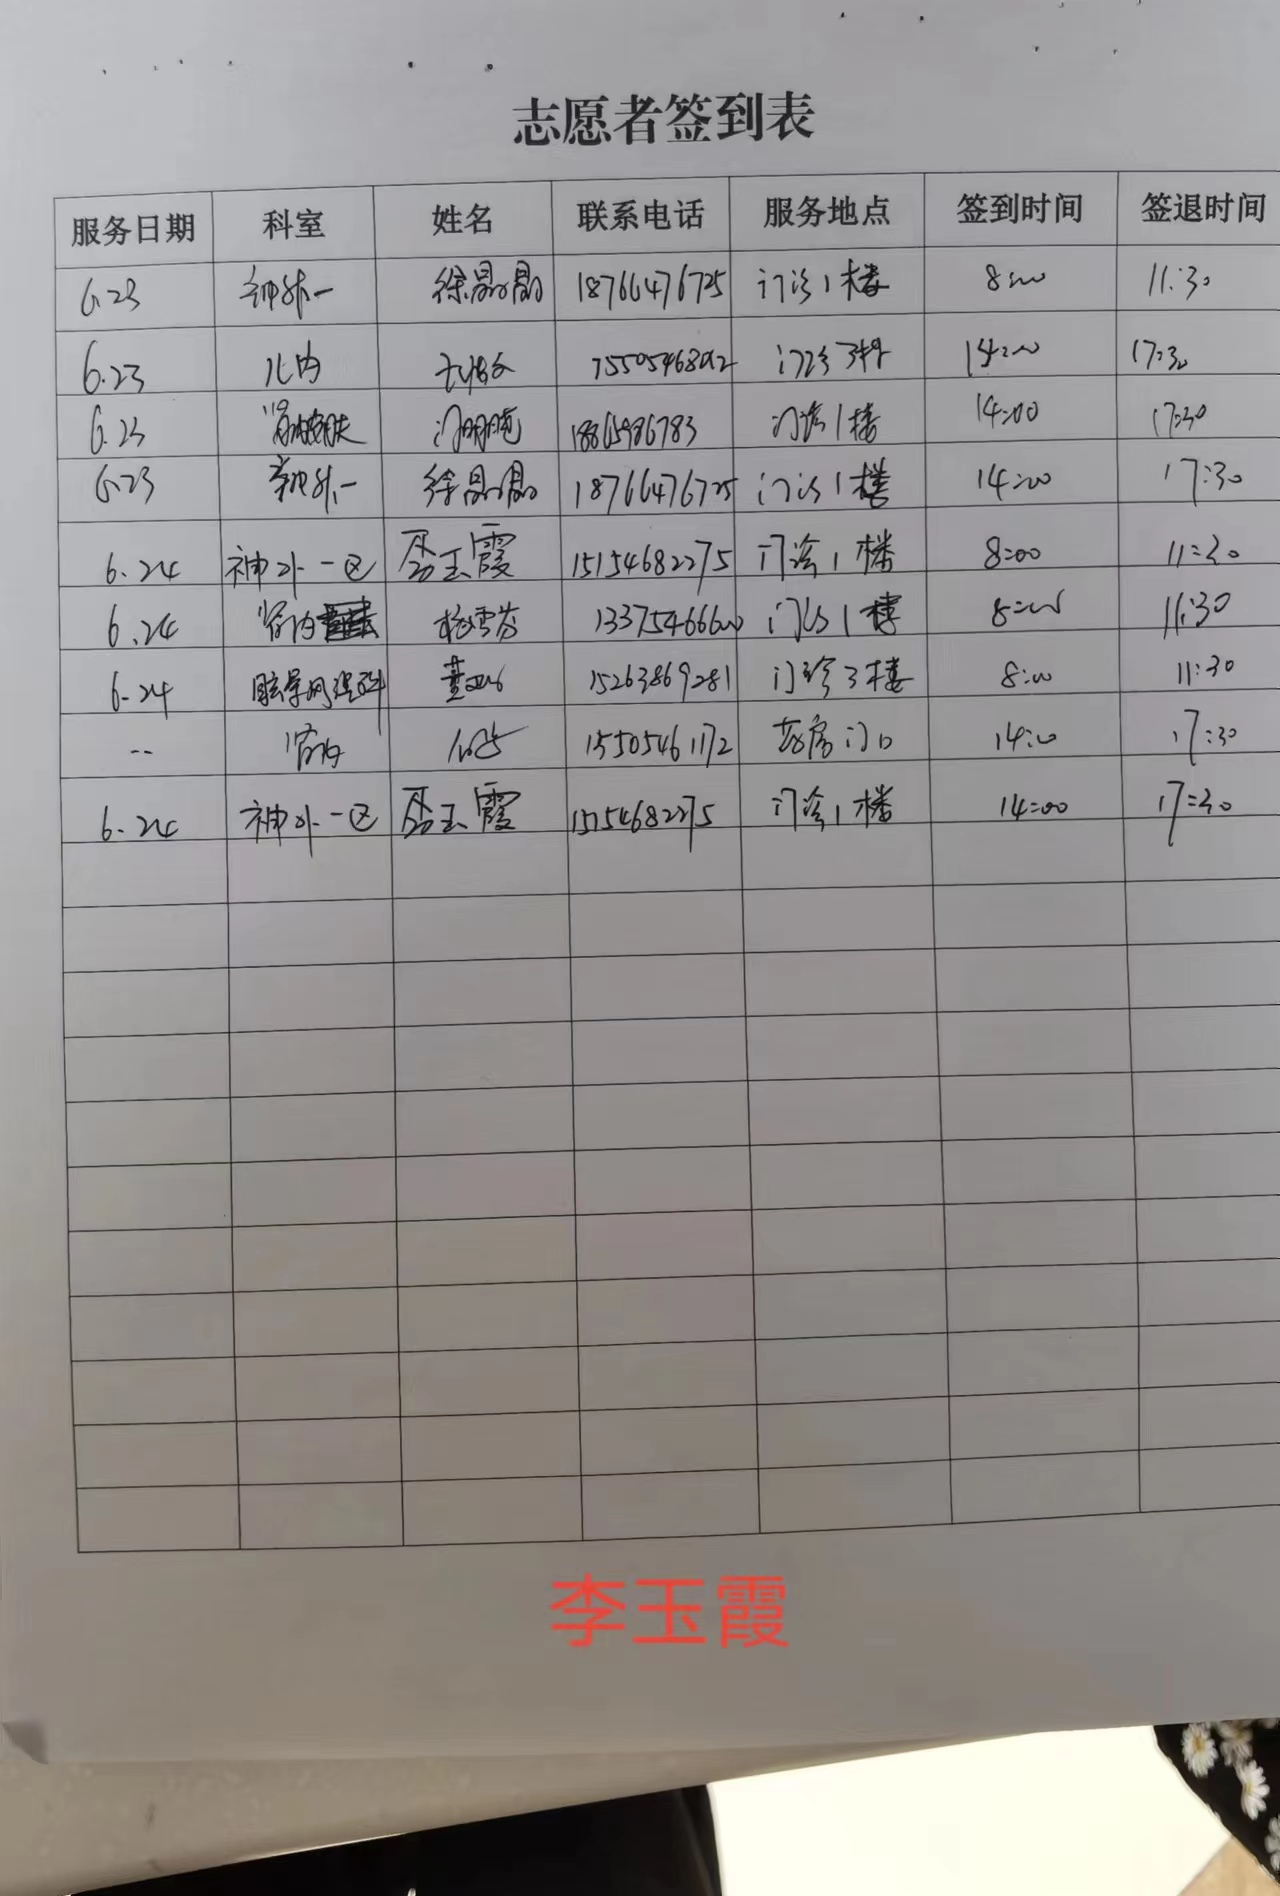 志愿者签到表
服务日期 科室 姓名 联系电话 服务地点 签到时间 签退时间
6.23 神外一 徐晶晶 18766476725 门诊1楼 8:00 11:30
6.23 儿内 门诊 14:00 17:30
6.23 门诊1楼 14:00 17:30
6.23 神外一 徐晶晶 18766476725 门诊1楼 14:00 17:30
6.24 神外一区 玉霞 15154682275 门诊1楼 8:00 11:30
6.24 肾内 门诊1楼 8:00 11:30
6.24 15263869281 门诊3楼 8:00 11:30
-- 肾内 15505461172 药房门口 14:00 17:30
6.24 神外一区 玉霞 15154682275 门诊1楼 14:00 17:30
李玉霞